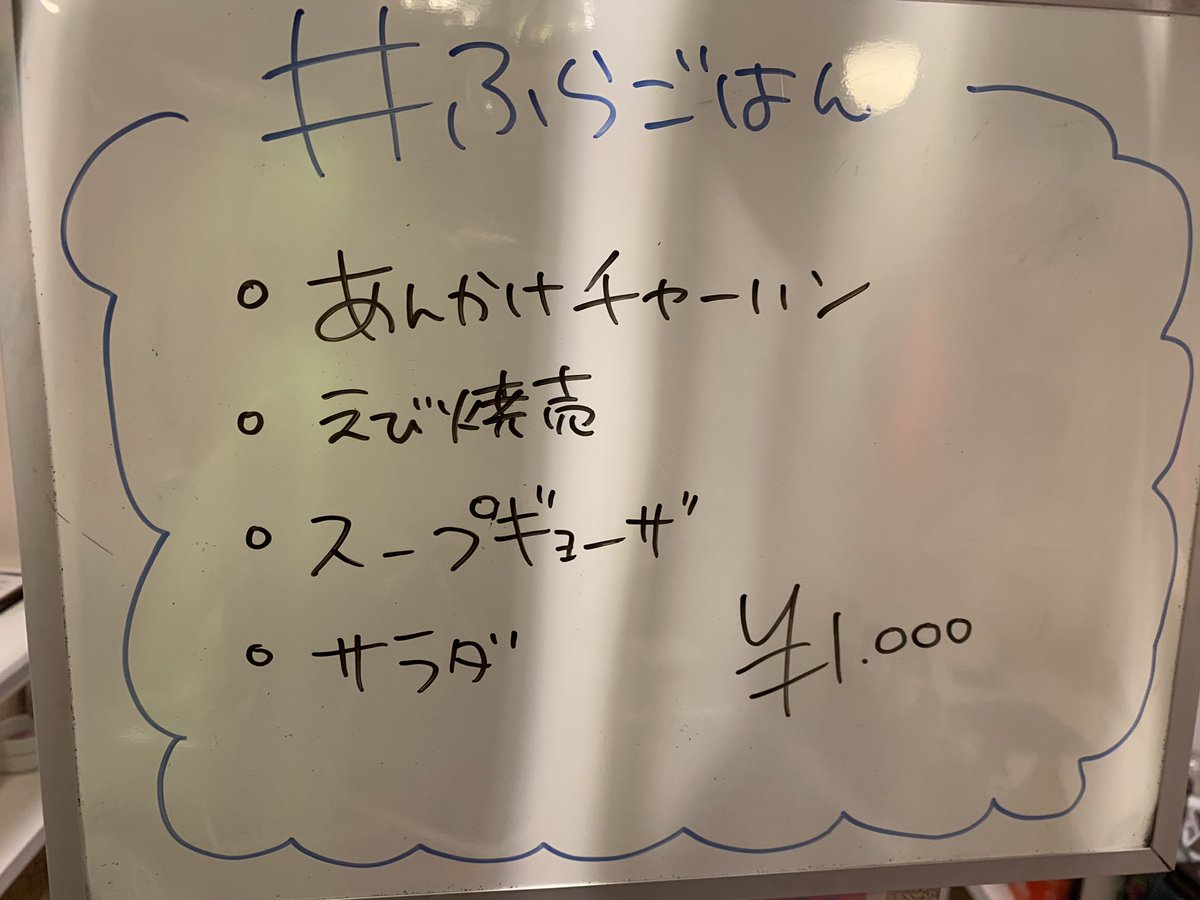 #ふらごはん
○ あんかけチャーハン
○ えび焼売
○ スープギョーザ
○ サラダ
¥1.000